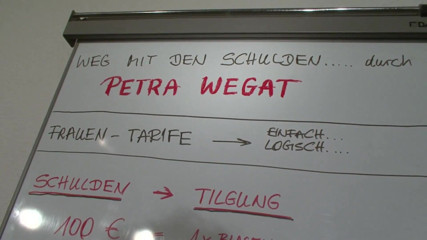 WEG MIT DEN SCHULDEN..... durch
PETRA WEGAT
FRAUEN - TARIFE → EINFACH...
LOGISCH....
SCHULDEN → TILGUNG
100 € = 1x